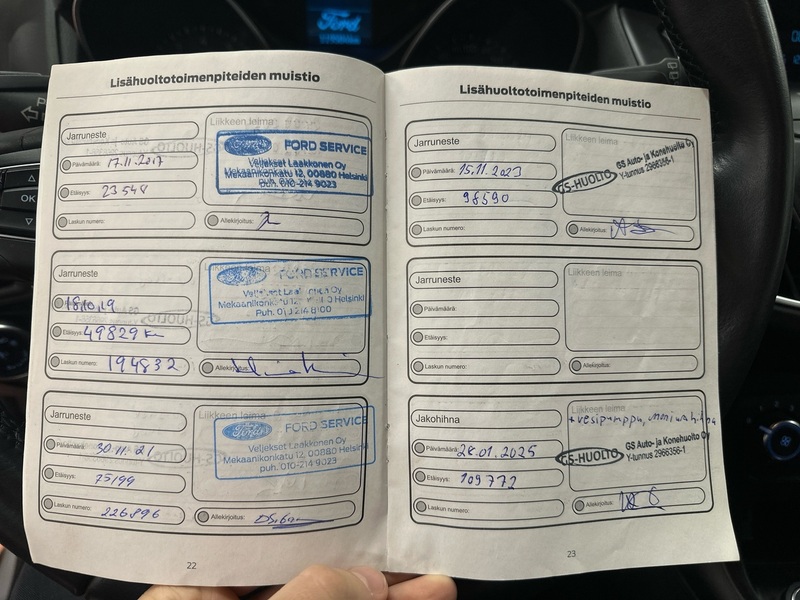 Ford
OK
Lisähuoltotoimenpiteiden muistio
Jarruneste
Päivämäärä: 17.11.2017
Etäisyys: 23548
Laskun numero:
Liikkeen leima
Ford
FORD SERVICE
Veljekset Laakkonen Oy
Mekaanikonkatu 12, 00880 Helsinki
puh. 010-214 9023
Allekirjoitus:
Jarruneste
18.10.19
Etäisyys: 49829 km
Laskun numero: 194832
Liikkeen leima
FORD SERVICE
Mekaanikonkatu 12
Helsinki
Allekirjoitus:
Jarruneste
Päivämäärä: 30.11.21
Etäisyys: 75199
Laskun numero: 226896
Liikkeen leima
Ford
FORD SERVICE
Veljekset Laakkonen Oy
Mekaanikonkatu 12, 00880 Helsinki
puh. 010-214 9023
Allekirjoitus:
22
Lisähuoltotoimenpiteiden muistio
Jarruneste
Päivämäärä: 15.11.2023
Etäisyys: 98590
Laskun numero:
Liikkeen leima
GS-HUOLTO
GS Auto- ja Konehuolto Oy
Y-tunnus 2966356-1
Allekirjoitus:
Jarruneste
Päivämäärä:
Etäisyys:
Laskun numero:
Liikkeen leima
Allekirjoitus:
Jakohihna
Päivämäärä: 28.01.2025
Etäisyys: 109772
Laskun numero:
Liikkeen leima
+vesipumppu, moniurahihna
GS-HUOLTO
GS Auto- ja Konehuolto Oy
Y-tunnus 2966356-1
Allekirjoitus:
23